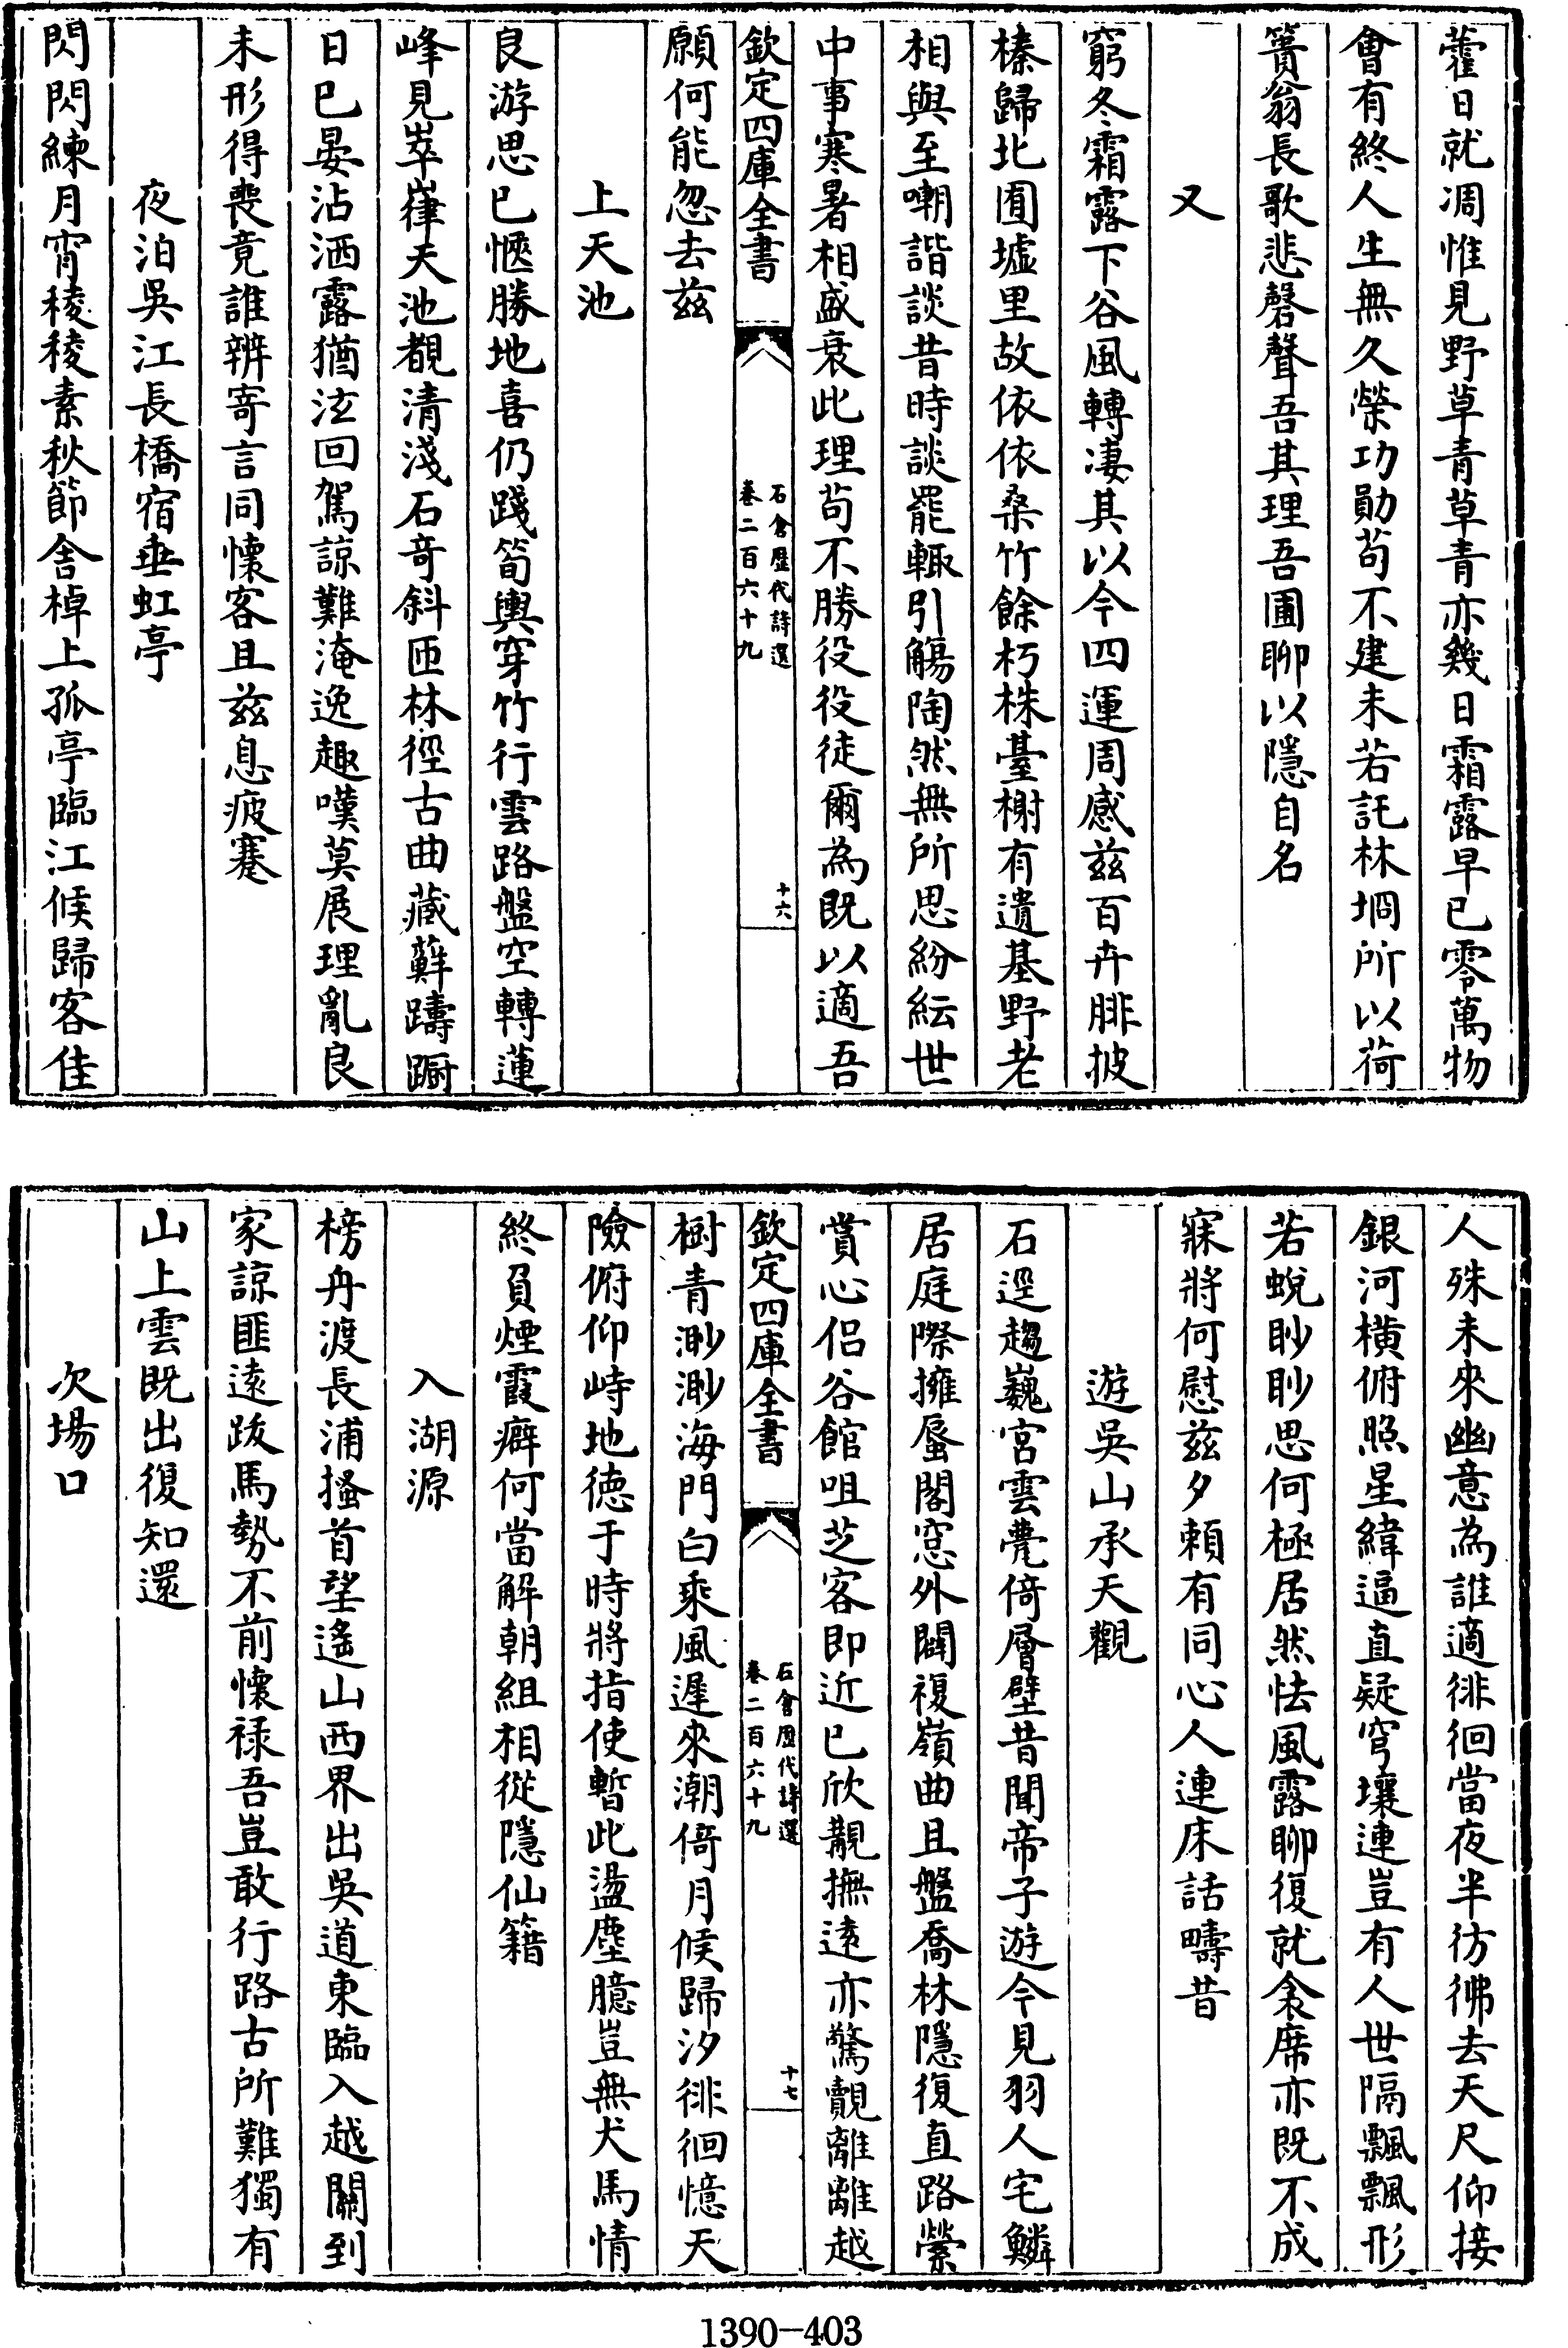 藿日就凋惟見野草青草青亦幾日霜露早已零萬物
會有終人生無久榮功勛苟不建未若託林坰所以荷
蕢翁長歌悲磬聲吾其理吾圃聊以隱自名
又
窮冬霜露下谷風轉凄其以今四運周感兹百卉腓披
榛歸北囿墟里故依依桑竹餘朽株臺榭有遺基野老
相與至嘲諧談昔時談罷輒引觴陶然無所思紛紜世
中事寒暑相盛衰此理苟不勝役役徒爾為既以適吾
欽定四庫全書
石倉歷代詩選
卷二百六十九
十六
願何能忽去兹
上天池
良游思已愜勝地喜仍踐筍輿穿竹行雲路盤空轉蓮
峰見崒嵂天池覩清淺石奇斜匝林徑古曲藏蘚躊躕
日已晏沾洒露猶泫回駕諒難淹逸趣嘆莫展理亂良
未形得喪竟誰辨寄言同懷客且兹息疲蹇
夜泊吳江長橋宿垂虹亭
閃閃練月宵稜稜素秋節舍棹上孤亭臨江候歸客佳
人殊未來幽意為誰適徘徊當夜半彷彿去天尺仰接
銀河橫俯照星緯逼直疑穹壤連豈有人世隔飄飄形
若蛻眇眇思何極居然怯風露聊復就衾席亦既不成
寐將何慰兹夕賴有同心人連床話疇昔
遊吳山承天觀
石逕趨巍宮雲甍倚層壁昔聞帝子遊今見羽人宅鱗
居庭際擁蜃閣窓外闢複嶺曲且盤喬林隱復直路縈
賞心侣谷館咀芝客即近已欣覯撫遠亦驚覿離離越
欽定四庫全書
石倉歷代詩選
卷二百六十九
十七
樹青渺渺海門白乘風遲來潮倚月候歸汐徘徊憶天
險俯仰峙地德于時將指使暫此盪塵臆豈無犬馬情
終負煙霞癖何當解朝組相從隱仙籍
入湖源
榜舟渡長浦搔首望遙山西界出吳道東臨入越關到
家諒匪遠跋馬勢不前懷禄吾豈敢行路古所難獨有
山上雲既出復知還
次場口
1390-403